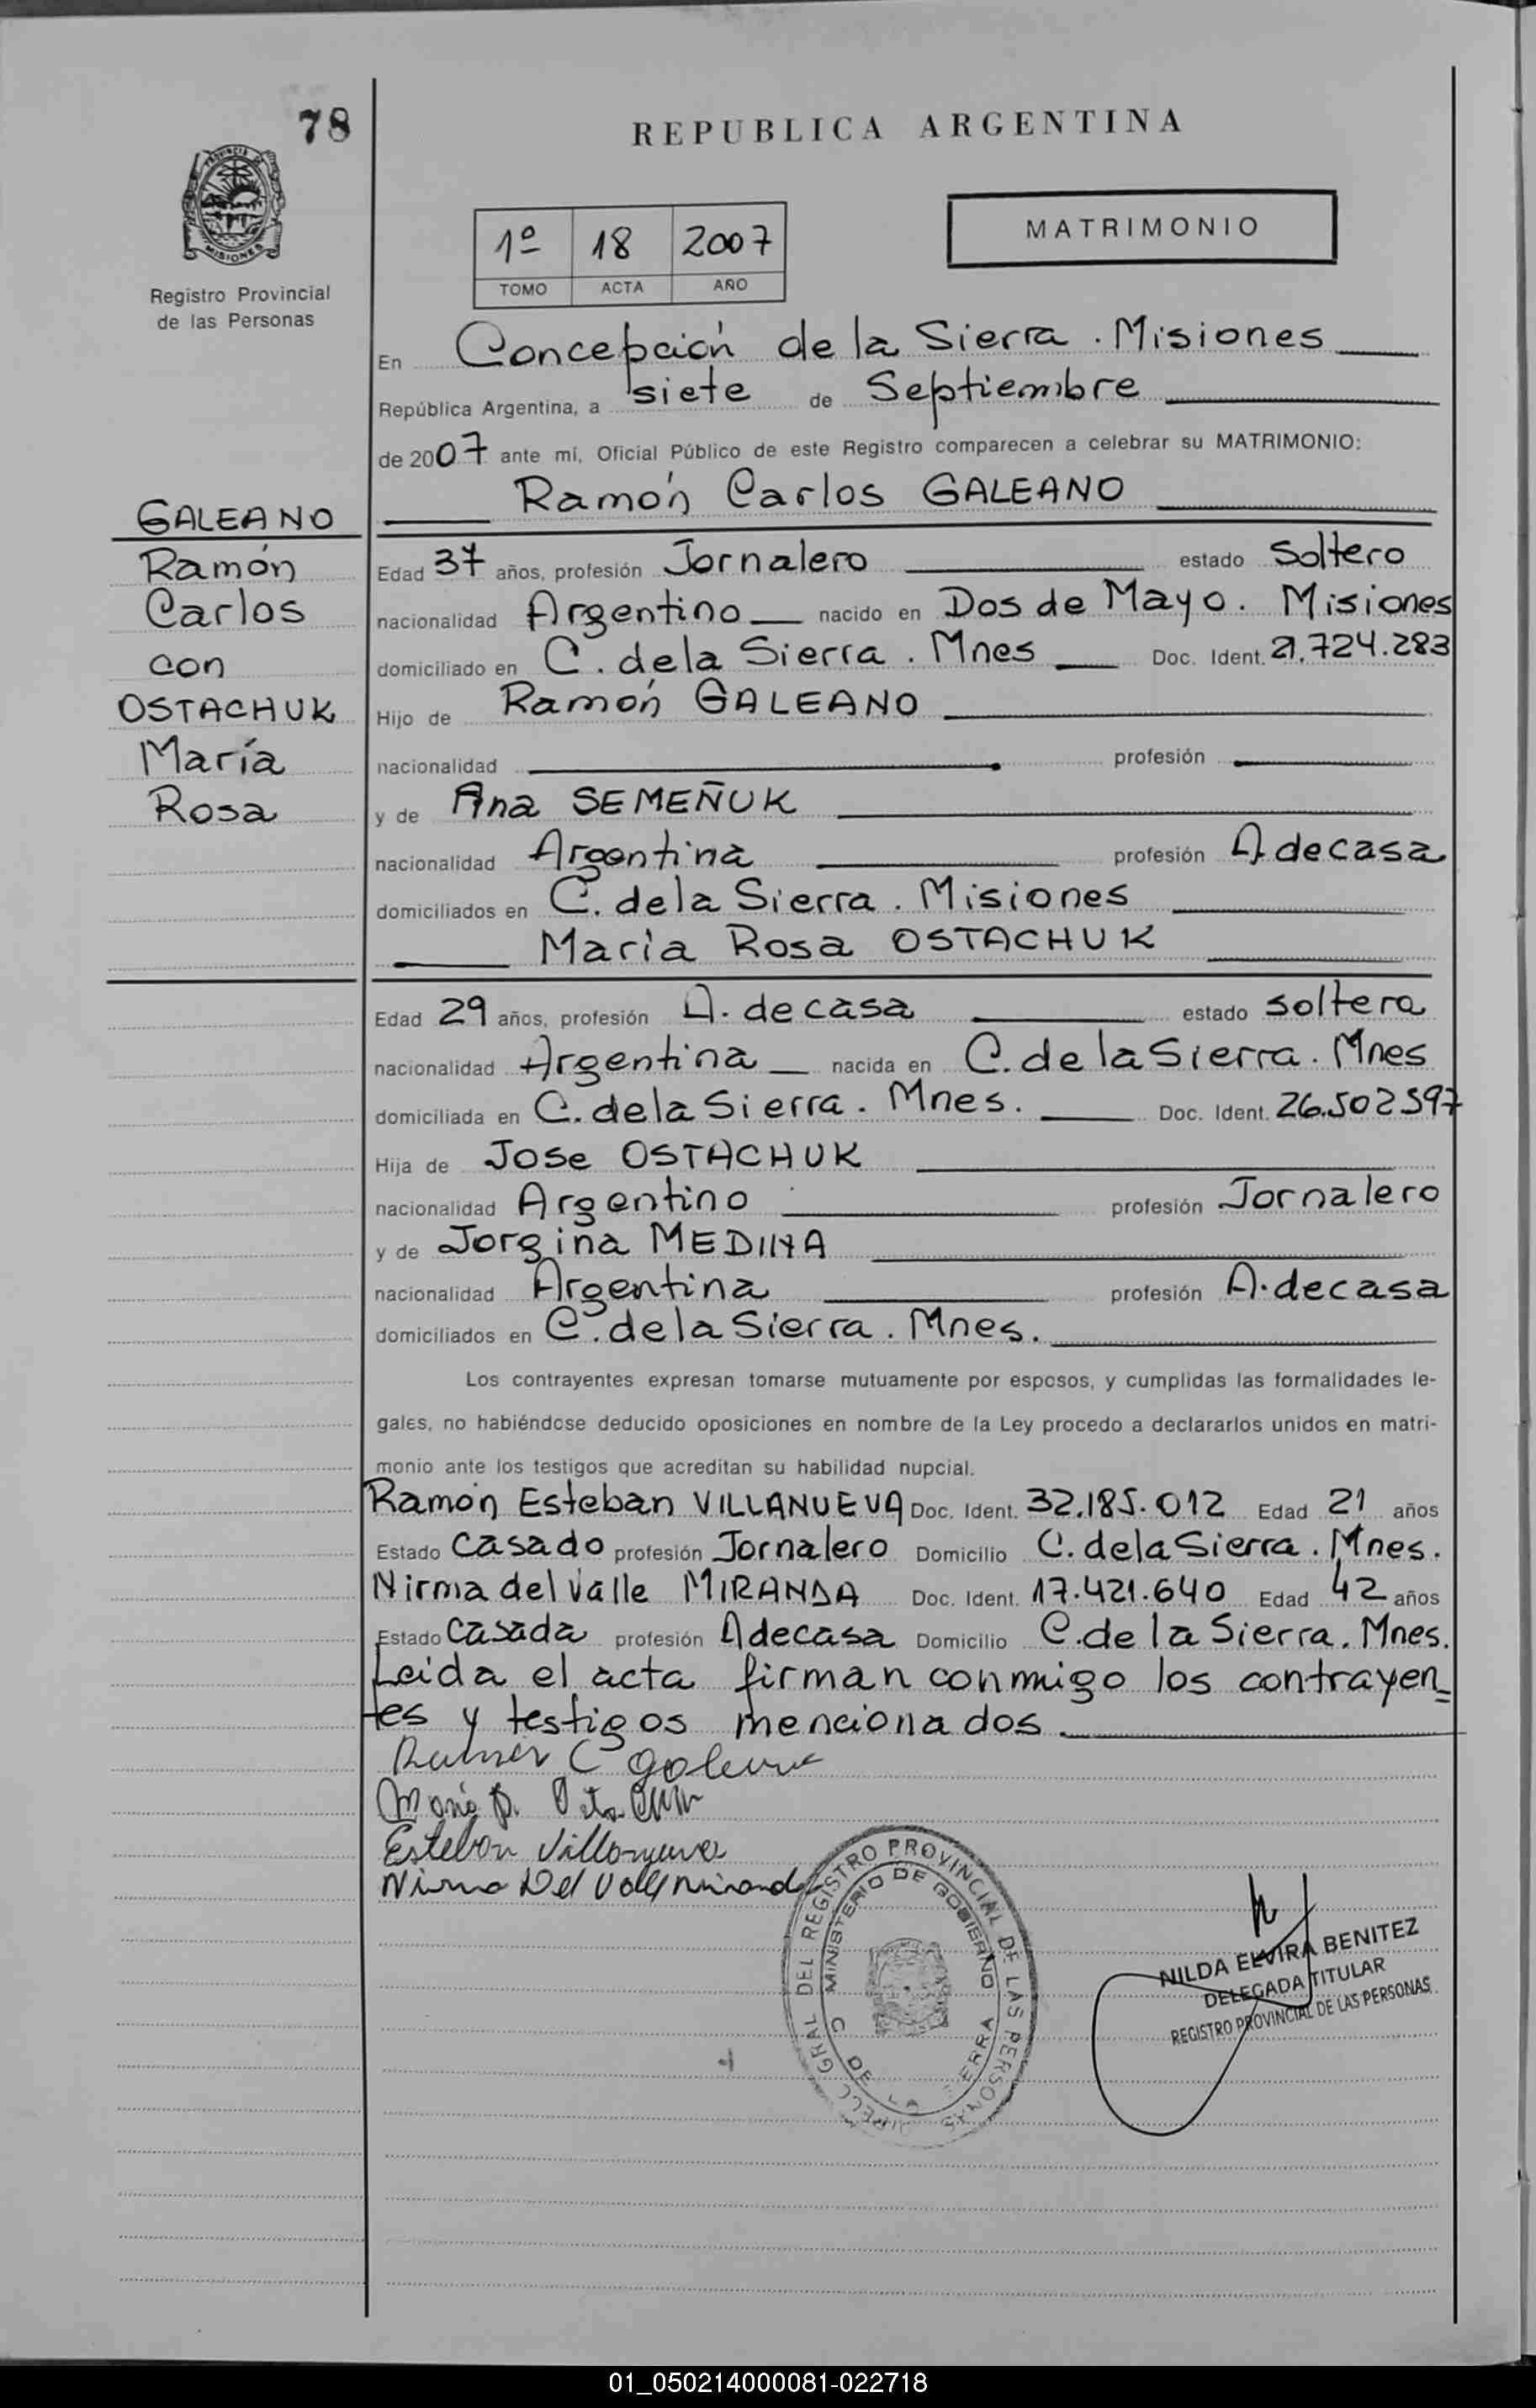 78
REPUBLICA ARGENTINA
PROVINCIA DE
MISIONES
Registro Provincial
de las Personas
1º 18 2007
TOMO ACTA AÑO
MATRIMONIO
En Concepción de la Sierra. Misiones
República Argentina, a siete de Septiembre
de 2007 ante mí, Oficial Público de este Registro comparecen a celebrar su MATRIMONIO:
Ramón Carlos GALEANO
GALEANO
Ramón
Carlos
con
OSTACHUK
María
Rosa
Edad 37 años, profesión Jornalero estado Soltero
nacionalidad Argentino nacido en Dos de Mayo. Misiones
domiciliado en C. de la Sierra. Mnes Doc. Ident. 21.724.283
Hijo de Ramón GALEANO
nacionalidad profesión
y de Ana SEMEÑUK
nacionalidad Argentina profesión A de casa
domiciliados en C. de la Sierra. Misiones
María Rosa OSTACHUK
Edad 29 años, profesión A. de casa estado soltera
nacionalidad Argentina nacida en C. de la Sierra. Mnes
domiciliada en C. de la Sierra. Mnes. Doc. Ident. 26.502597
Hija de Jose OSTACHUK
nacionalidad Argentino profesión Jornalero
y de Jorgina MEDINA
nacionalidad Argentina profesión A. de casa
domiciliados en C. de la Sierra. Mnes.
Los contrayentes expresan tomarse mutuamente por esposos, y cumplidas las formalidades le-
gales, no habiéndose deducido oposiciones en nombre de la Ley procedo a declararlos unidos en matri-
monio ante los testigos que acreditan su habilidad nupcial.
Ramón Esteban VILLANUEVA Doc. Ident. 32.185.012 Edad 21 años
Estado Casado profesión Jornalero Domicilio C. de la Sierra. Mnes.
Nirma del Valle MIRANDA Doc. Ident. 17.421.640 Edad 42 años
Estado Casada profesión A de casa Domicilio C. de la Sierra. Mnes.
Leida el acta firman conmigo los contrayen=
tes y testigos mencionados.
Ramón C Galeano
María R.
Esteban Villanueva
Nirma Del Valle Miranda
DIRECC GRAL DEL REGISTRO PROVINCIAL DE LAS PERSONAS
MINISTERIO DE GOBIERNO
C DE LA
NILDA ELVIRA BENITEZ
DELEGADA TITULAR
REGISTRO PROVINCIAL DE LAS PERSONAS
01_050214000081-022718